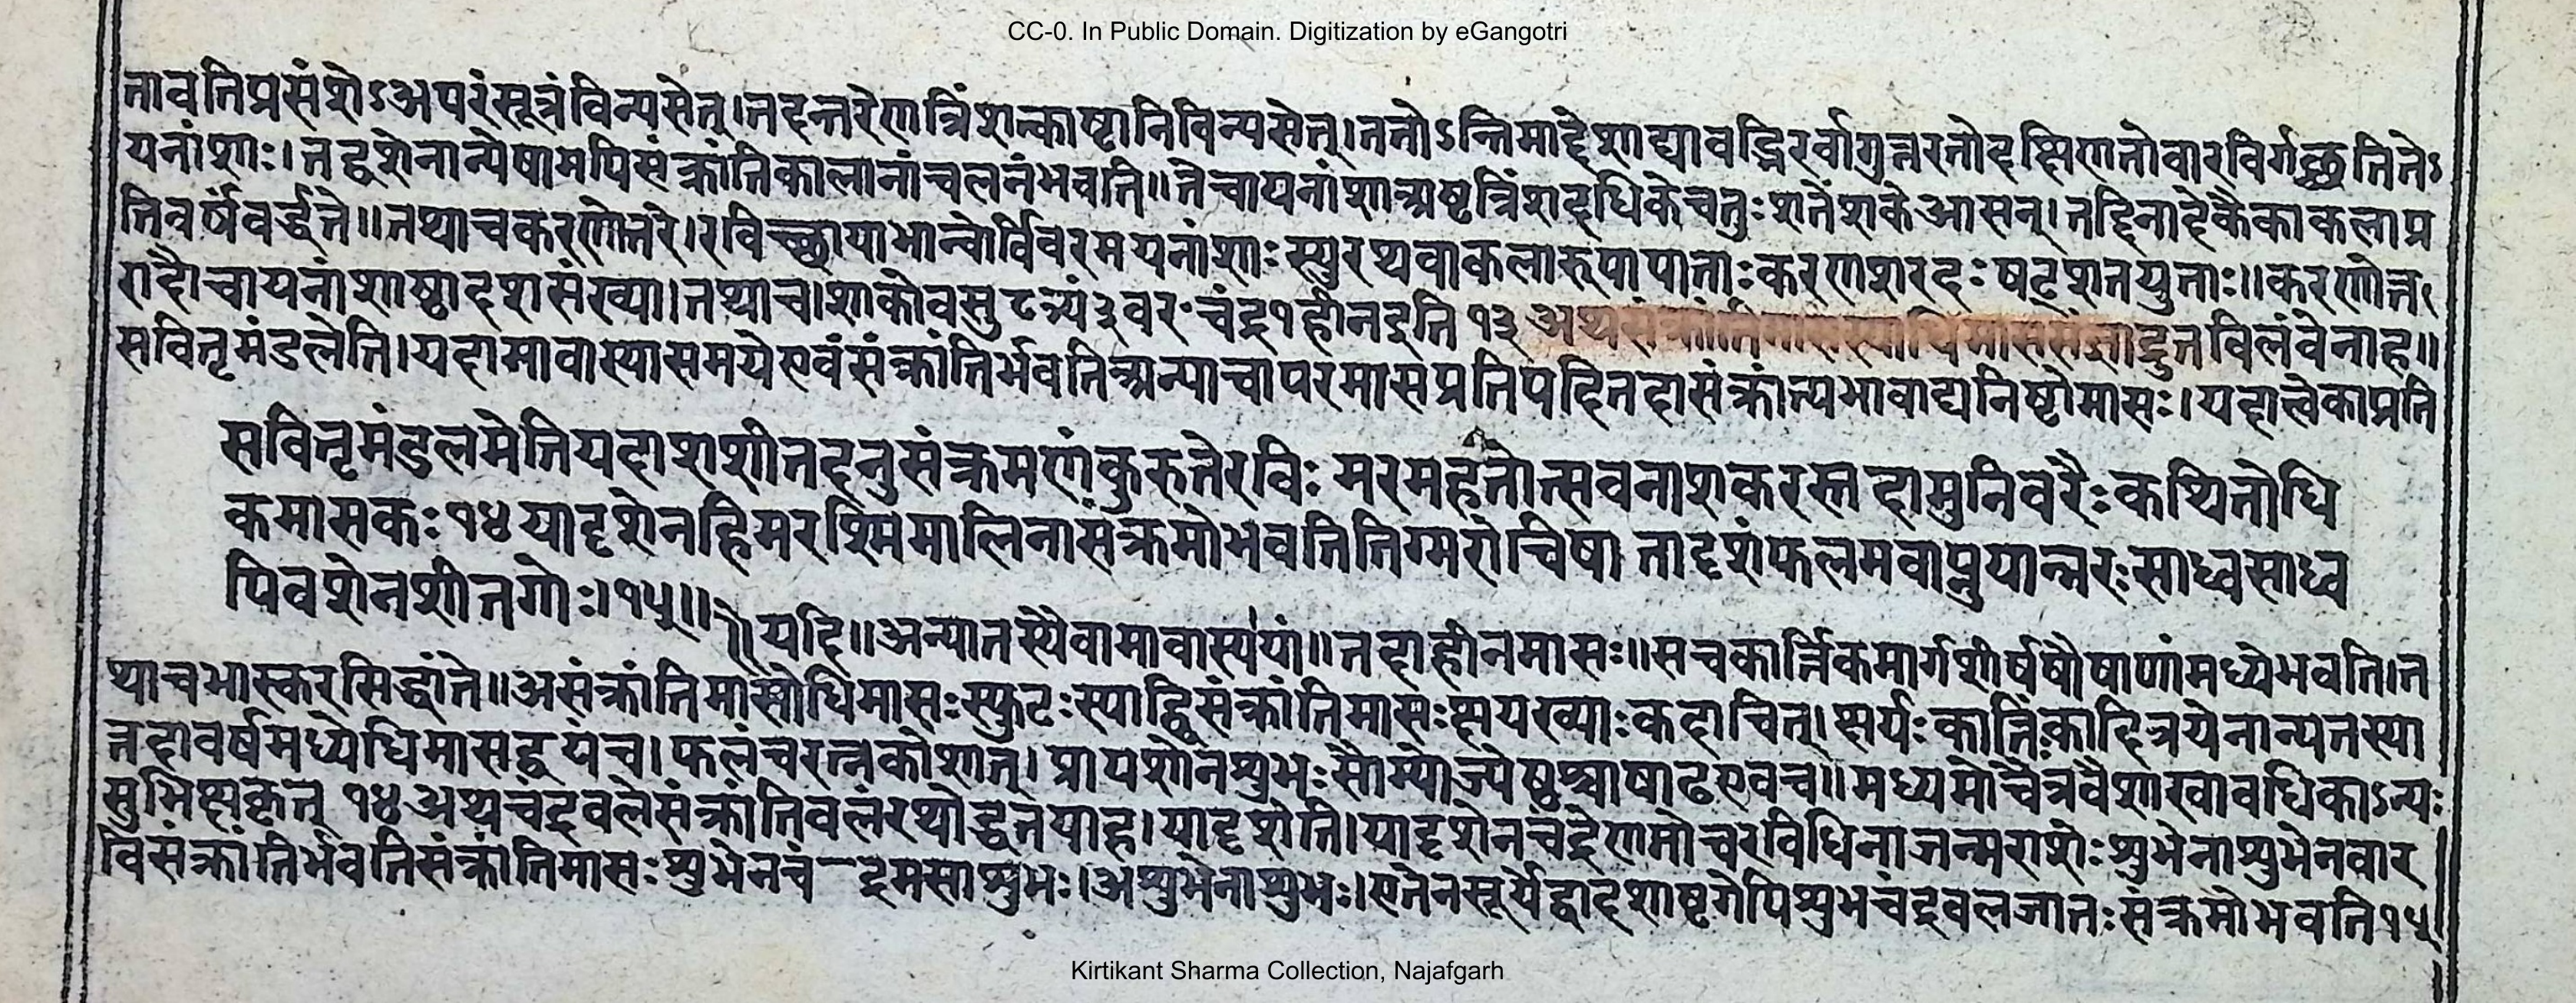 CC-0. In Public Domain. Digitization by eGangotri
तावतिप्रसंशेऽअपरंसूत्रंविन्यसेत्।तदन्तरेणत्रिंशत्काष्टानिविन्यसेत्।ततोऽन्तिमाद्देशाद्यावद्भिरर्वागुत्तरतोदक्षिणतोवारविर्गच्छतितेऽ
यनांशाः।तद्वशेनान्येषामपिसंक्रांतिकालानांचलनंभवति॥तेचायनांशाअष्टत्रिंशदधिकेचतुःशतेशकेआसन्।तद्दिनादेकैकाकलाप्र
तिवर्षंवर्द्धते॥तथाचकरणोत्तरे।रविच्छायाभान्वोर्विवरमयनांशाःस्युरथवाकलारूपापाताःकरणशरदःषट्शतयुताः॥करणोत्त
राद्दौचायनांशाष्टादशसंख्या।तथाच।शाकोवसु८त्र्यं३वर॰चंद्र१हीनइति १३ अथसंक्रांति विलंवेनाह॥
सवितृमंडलेति।यदामावास्यासमयेएवंसंक्रांतिर्भवतिअन्याचापरमासप्रतिपदितदासंक्रांत्यभावाद्यनिष्टोमासः।यदात्वेकाप्रति
सवितृमंडलमेतियदाशशीतदनुसंक्रमणंकुरुतेरविः मरमहतोत्सवनाशकरस्तदामुनिवरैःकथितोधि
कमासकः१४यादृशेनहिमरश्मिमालिनासंक्रमोभवतितिग्मरोचिषा तादृशंफलमवाप्नुयान्नरःसाध्वसाध्व
पिवशेनशीतगोः।१५॥
यदि॥अन्यातस्यैवामावास्यायां॥तदाहीनमासः॥सचकार्त्तिकमार्गशीर्षपौषाणांमध्येभवति।त
थाचभास्करसिद्धांते॥असंक्रांतिमासोधिमासःस्फुटःस्याद्द्विसंक्रांतिमासःक्षयख्याःकदाचित्।क्षयःकार्त्तिकादित्रयेनान्यतस्या
त्तदावर्षमध्येधिमासद्वयंच।फलंचरत्नकोशात्।प्रायशोनशुभःसौम्योज्येष्ठश्चाषाढएवच॥मध्यमोचैत्रवैशाखावधिकाऽन्यः
सुभिक्षकृत् १४ अथचंद्रवलेसंक्रांतिवलंरथोद्धतयाह।यादृशेति।यादृशेनचंद्रेणगोचरविधिनाजन्मराशेःशुभेनाशुभेनवार
विसंक्रांतिर्भवतिसंक्रांतिमासःशुभेनचंद्रमसाशुभः।अशुभेनाशुभः।एतेनसूर्येद्वादशाष्टगेपिशुभचंद्रवलजातःसंक्रमोभवति१५
Kirtikant Sharma Collection, Najafgarh